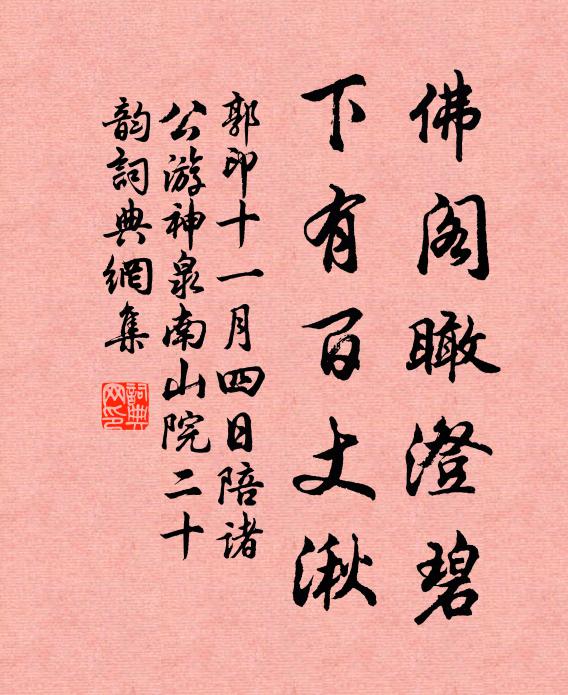 佛阁瞰澄碧
下有百丈湫
郭印十一月四日陪诸
公游神泉南山院二十
韵詞典網集
詞典网印